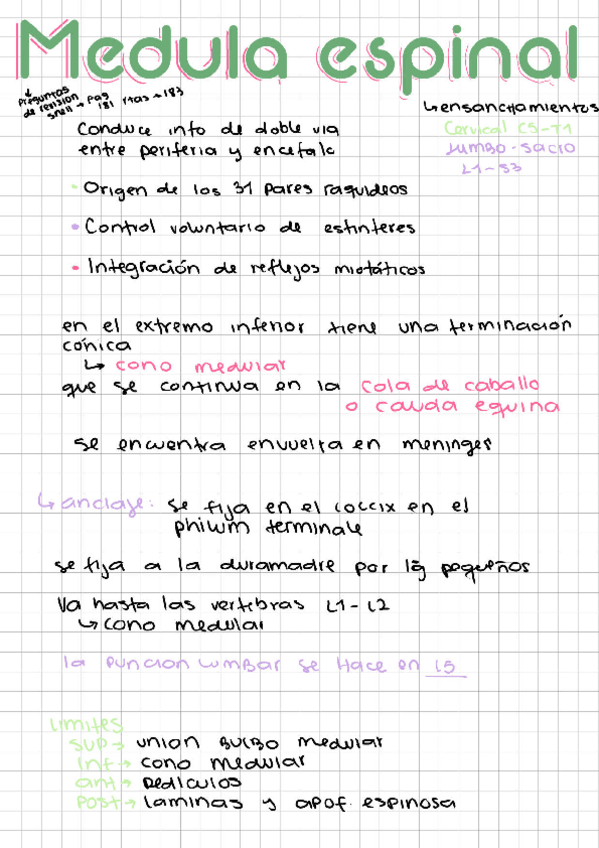 Medula espinal
preguntas
de revision
snell → pag
181
↳ensanchamientos
Cervical C5-T1
Lumbo-sacro
L1-S3
Conduce info de doble via
entre periferia y encefalo
• Origen de los 31 pares raquideos
• Control voluntario de esfinteres
• Integración de reflejos miotáticos
en el extremo inferior tiene una terminación
cónica
↳ cono medular
que se continua en la cola de caballo
o cauda equina
se encuentra envuelta en meninges
↳anclaje: se fija en el coccix en el
philum terminale
se fija a la duramadre por pequeños
Va hasta las vertebras L1-L2
↳cono medular
la puncion lumbar se hace en L5
Limites
SUP→ union bulbo medular
Inf→ cono medular
ant→ pediculos
Post→ laminas y apof. espinosa